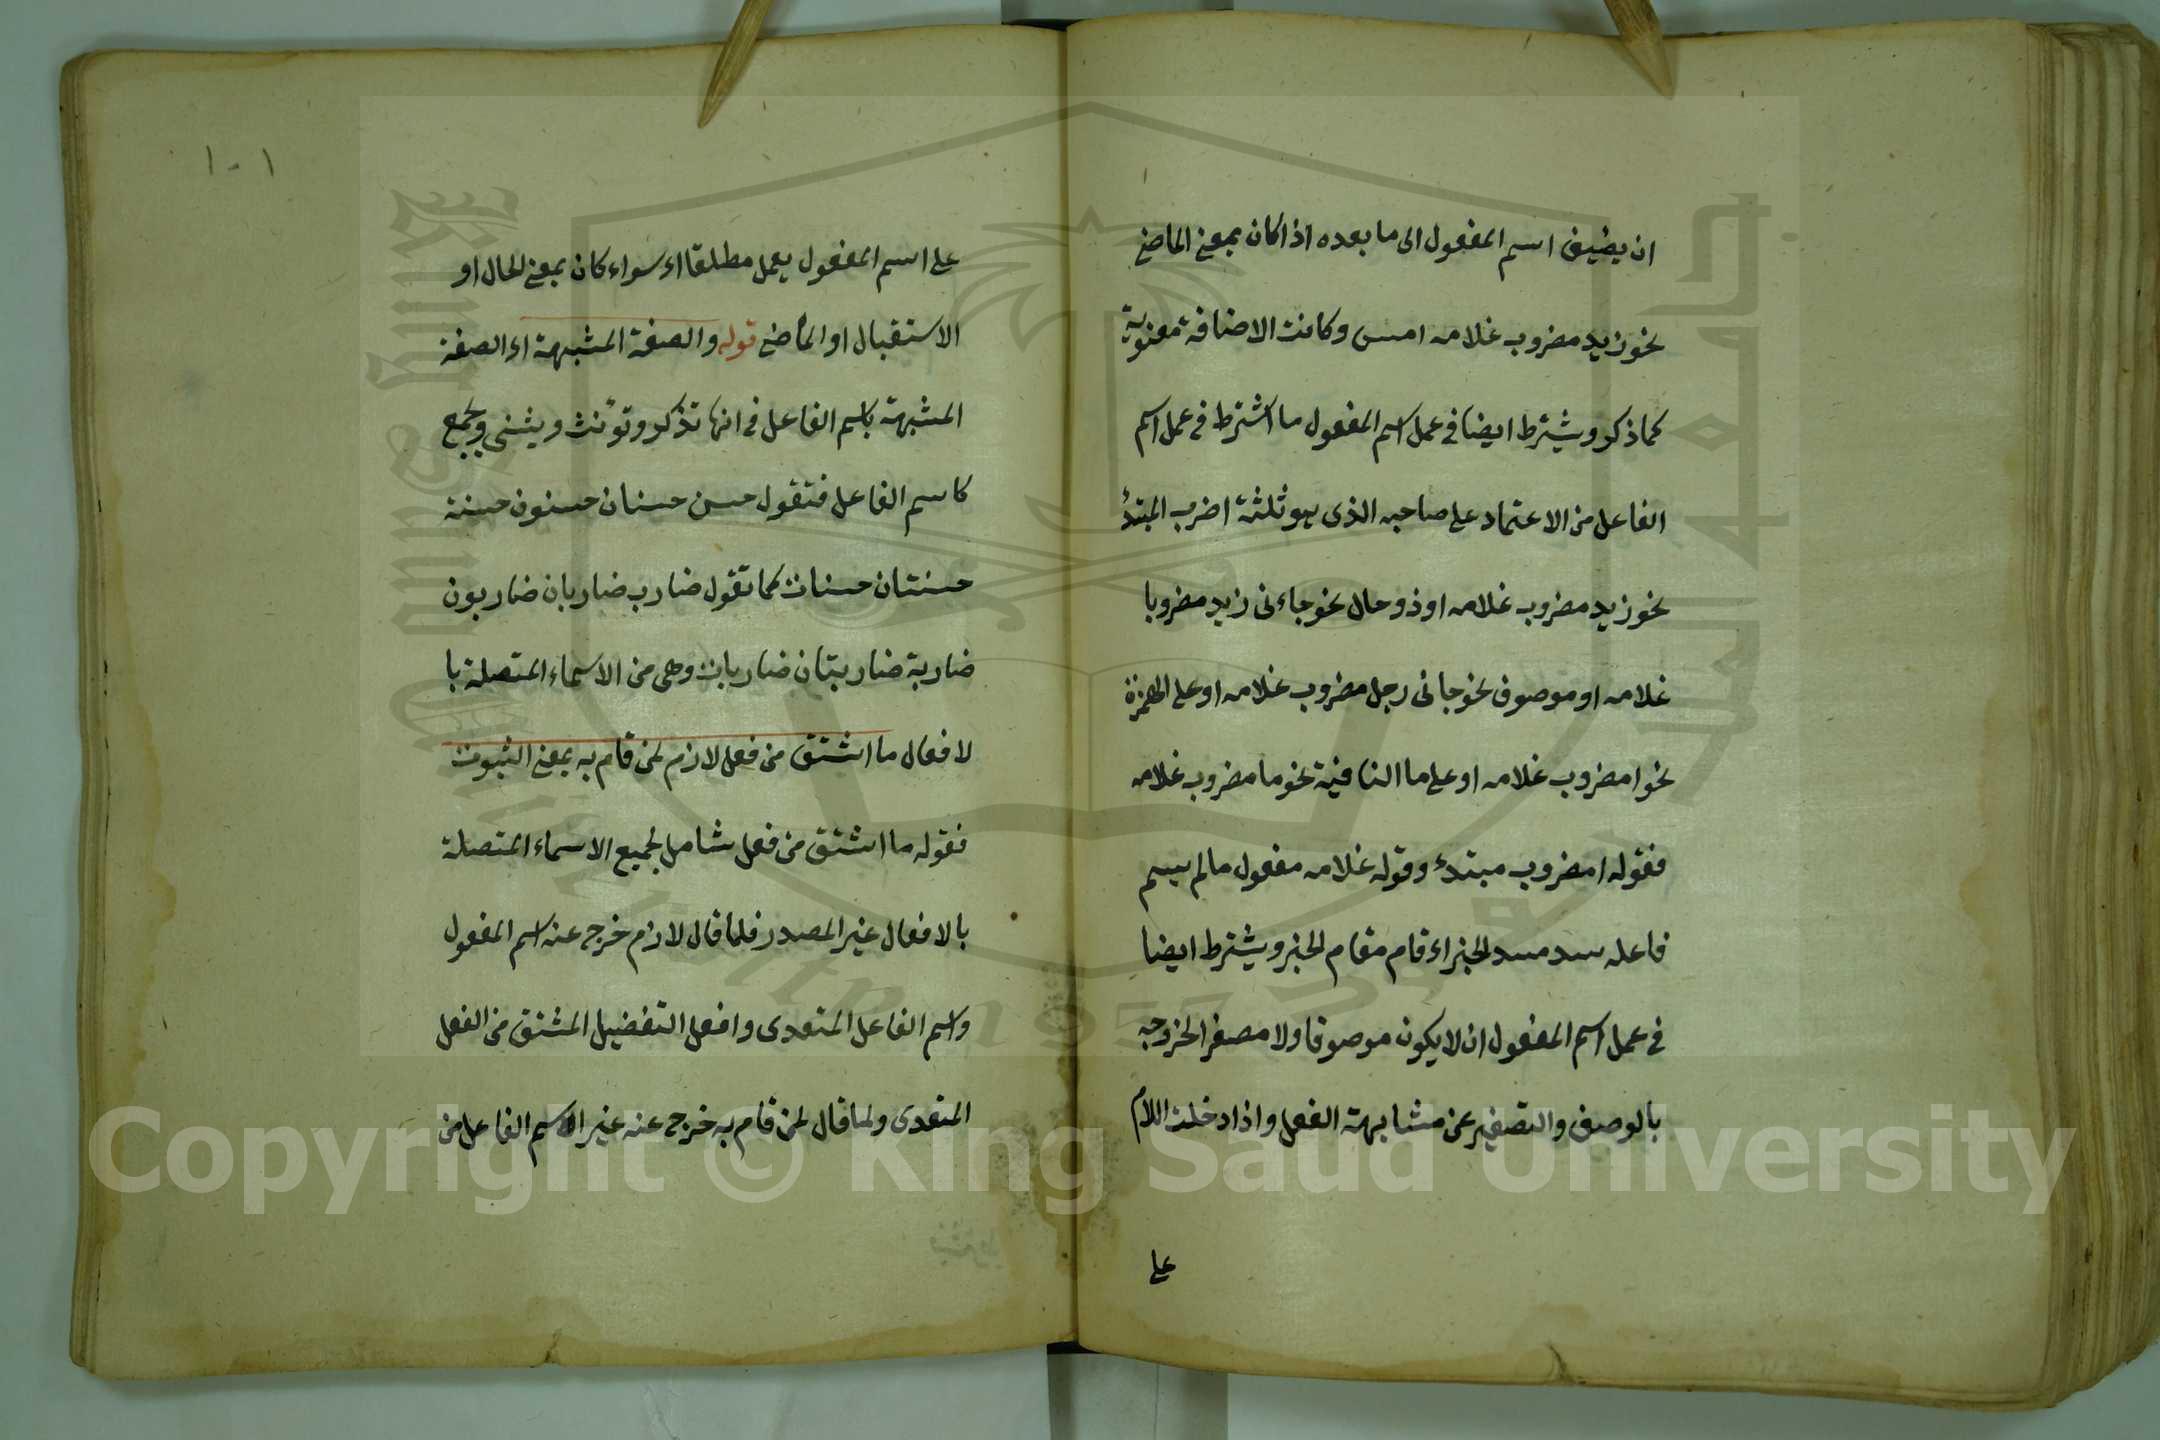 ان يضيف اسم المفعول الى ما بعده اذا كان بمعنى الماضى
نحو زيد مضروب غلامه امس وكانت الاضافة معنوية
كما ذكر ويشترط ايضا فى عمل اسم المفعول ما اشترط فى عمل اسم
الفاعل من الاعتماد على صاحبه الذى هو ثلثة اضرب المبتدأ
نحو زيد مضروب غلامه او ذو حال نحو جاءنى زيد مضروبا
غلامه او موصوف نحو جانى رجل مضروب غلامه او على الهمزة
نحو امضروب غلامه او على ما النافية نحو ما مضروب غلامه
فقوله امضروب مبتدء وقوله غلامه مفعول مالم يسم
فاعله سد مسد الخبر اى قام مقام الخبر ويشترط ايضا
فى عمل اسم المفعول ان لا يكون موصوفا ولا مصغرا لخروجه
بالوصف والتصغير عن مشابهة الفعل واذا دخلت اللام
على
١٠١
على اسم المفعول يعمل مطلقا اى سواء كان بمعنى الحال او
الاستقبال او الماضى قوله والصفة المشبهة اى الصفة
المشبهة باسم الفاعل فى انها تذكر وتؤنث ويثنى ويجمع
كاسم الفاعل فتقول حسن حسنان حسنون حسنة
حسنتان حسنات كما تقول ضارب ضاربان ضاربون
ضاربة ضاربتان ضاربات وهى من الاسماء المتصلة با
لا فعال ما اشتق من فعل لازم لمن قام به بمعنى الثبوت
فقوله ما اشتق من فعل شامل لجميع الاسماء المتصلة
بالافعال غير المصدر فلما قال لازم خرج عنه اسم المفعول
واسم الفاعل المتعدى وافعل التفضيل المشتق من الفعل
المتعدى ولما قال لمن قام به خرج عنه غير اسم الفاعل من
Copyright © King Saud University